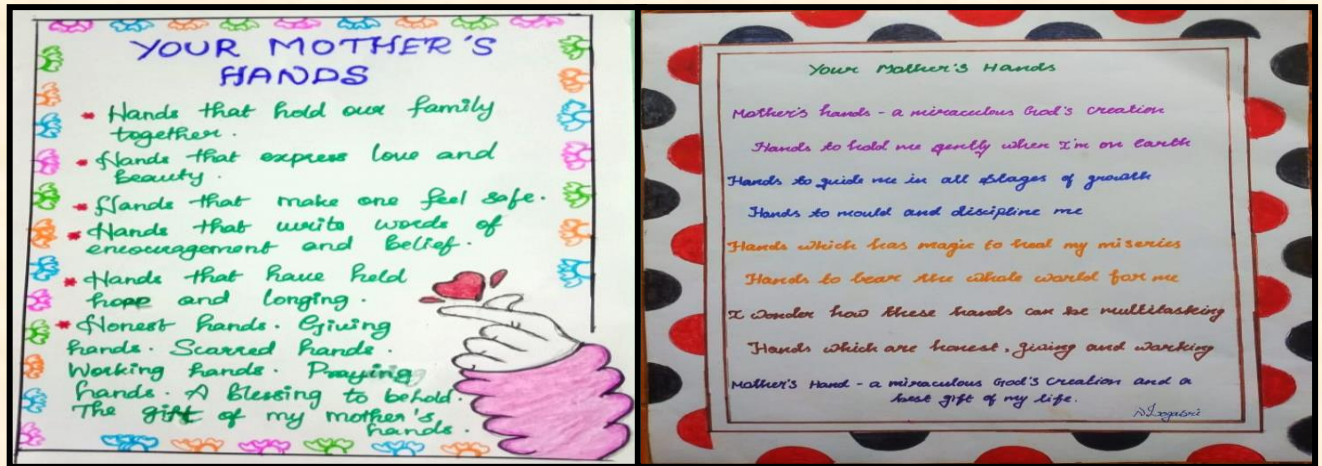 YOUR MOTHER'S
HANDS
* Hands that hold our family
together.
* Hands that express love and
beauty.
* Hands that make one feel safe.
* Hands that write words of
encouragement and belief.
* Hands that have held
hope and longing.
* Honest hands. Giving
hands. Scarred hands.
Working hands. Praying
hands. A blessing to behold.
The gift of my mother's
hands.
Your Mother's Hands
Mother's hands - a miraculous God's creation
Hands to hold me gently when I'm on earth
Hands to guide me in all stages of growth
Hands to mould and discipline me
Hands which has magic to heal my miseries
Hands to bear the whole world for me
I wonder how these hands can be multitasking
Hands which are honest, giving and working
Mother's Hand - a miraculous God's creation and a
best gift of my life.